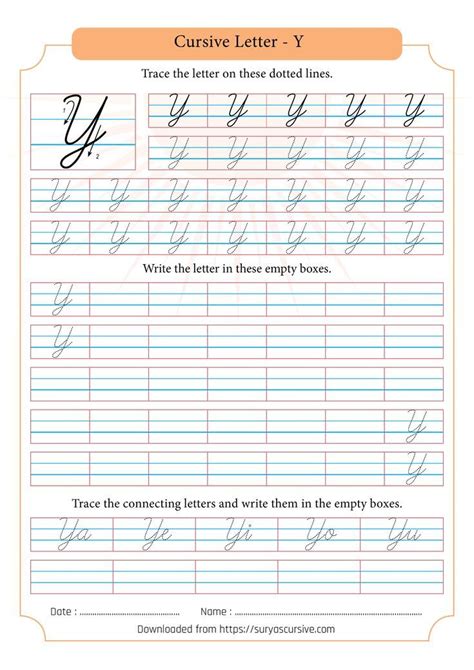 Cursive Letter - Y
Trace the letter on these dotted lines.
1 2 Y Y Y Y Y Y
Y Y Y Y Y Y
Y Y Y Y Y Y Y
Y Y Y Y Y Y Y
Write the letter in these empty boxes.
Y
Y
Y
Y
Trace the connecting letters and write them in the empty boxes.
Ya Ye Yi Yo Yu
Date : ................................ Name : ................................................
Downloaded from https://suryascursive.com